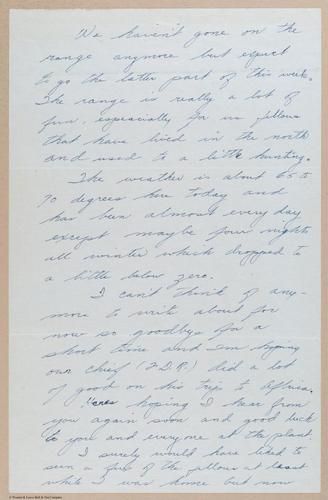 We haven't gone on the
range anymore but expect
to go the latter part of this week.
The range is really a lot of
fun, especially for us fellows
that have lived in the north
and used to a little hunting.
The weather is about 65 to
70 degrees here today and
has been almost every day
except maybe four nights
all winter which dropped to
a little below zero.
I can't think of any-
more to write about for
now so goodbye for a
short time and I'm hoping
our chief (F.D.R.) did a lot
of good on his trip to Africa.
Heres hoping I hear from
you again soon and good luck
to you and everyone at the plant.
I surely would have liked to
seen a few of the fellows at least
while I was home but now